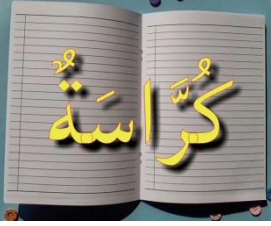 كُرَّاسَةٌ